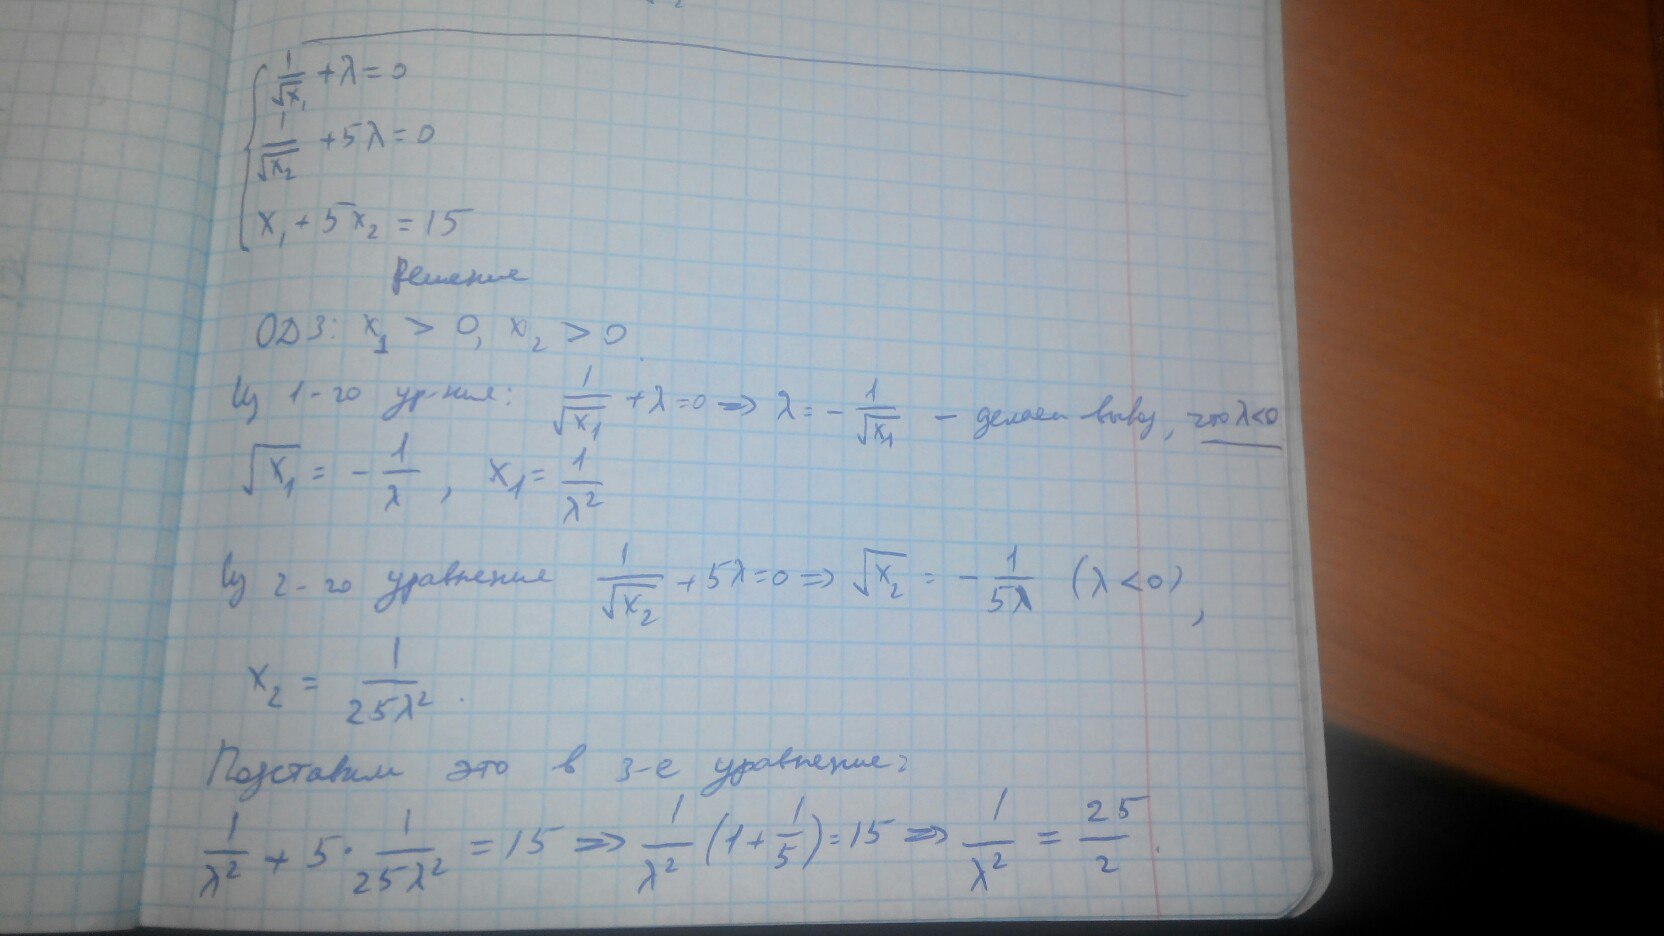 1/√x₁ + λ = 0
1/√x₂ + 5λ = 0
x₁ + 5x₂ = 15
Решение
ОДЗ: x₁ > 0, x₂ > 0.
Из 1-го ур-ния: 1/√x₁ + λ = 0 ⇒ λ = - 1/√x₁ - делаем вывод, что λ<0
√x₁ = - 1/λ, x₁ = 1/λ²
Из 2-го уравнения 1/√x₂ + 5λ = 0 ⇒ √x₂ = - 1/5λ (λ < 0),
x₂ = 1/25λ².
Подставим это в 3-е уравнение:
1/λ² + 5 · 1/25λ² = 15 ⇒ 1/λ² (1 + 1/5) = 15 ⇒ 1/λ² = 25/2.